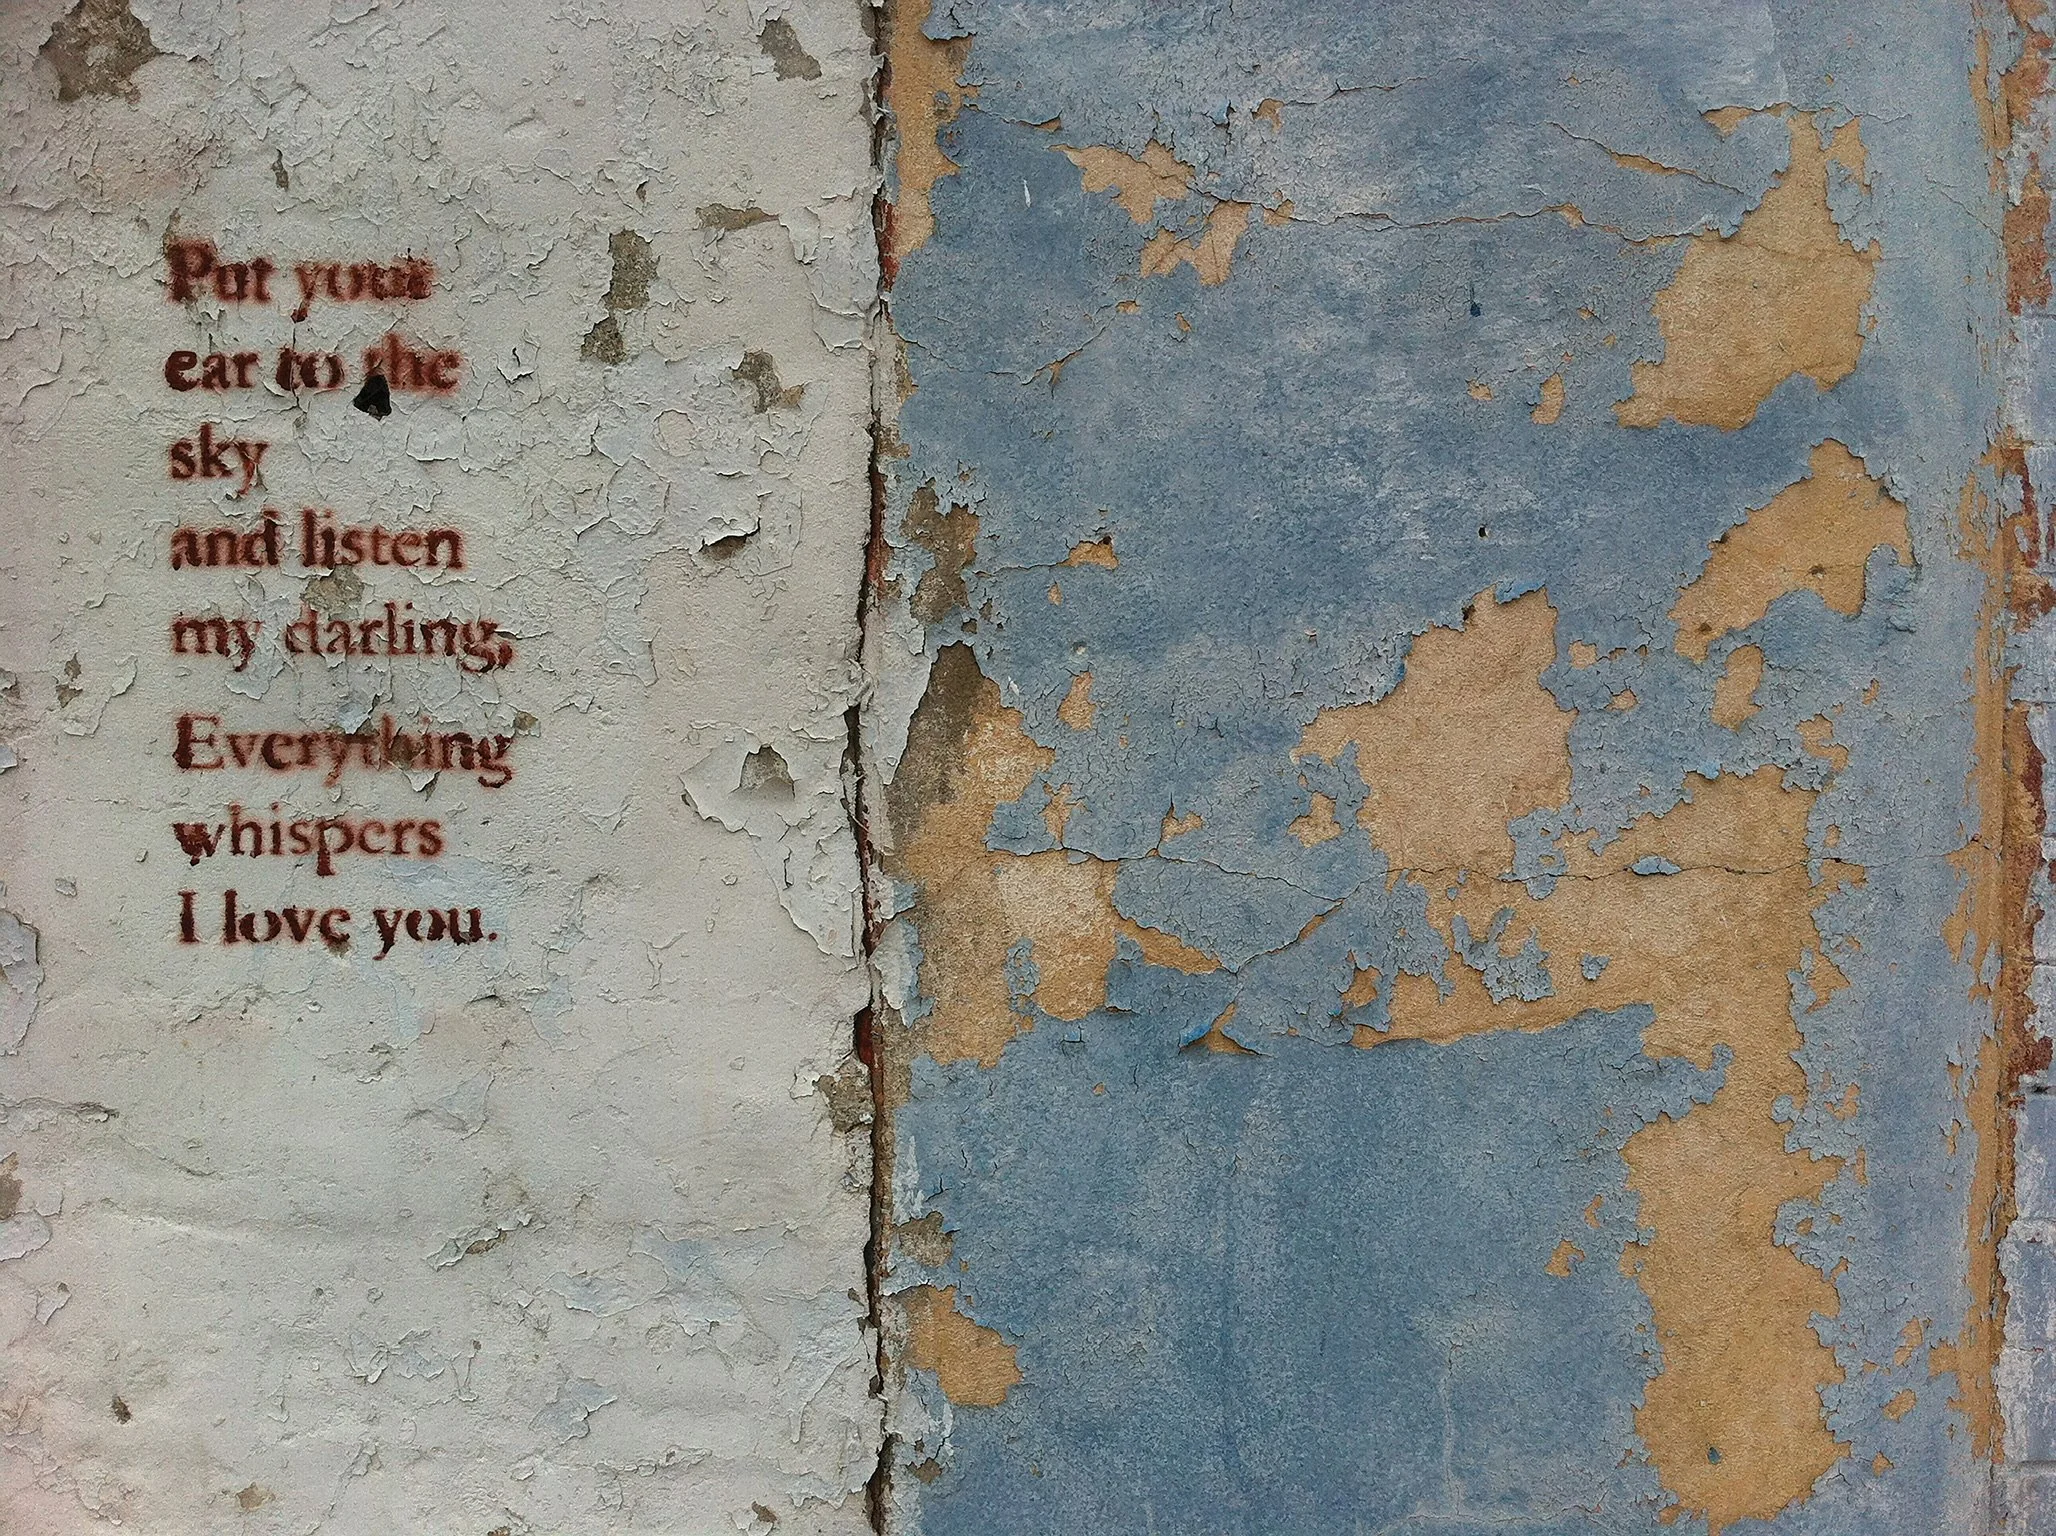 Put your
ear to the
sky
and listen
my darling,
Everything
whispers
I love you.